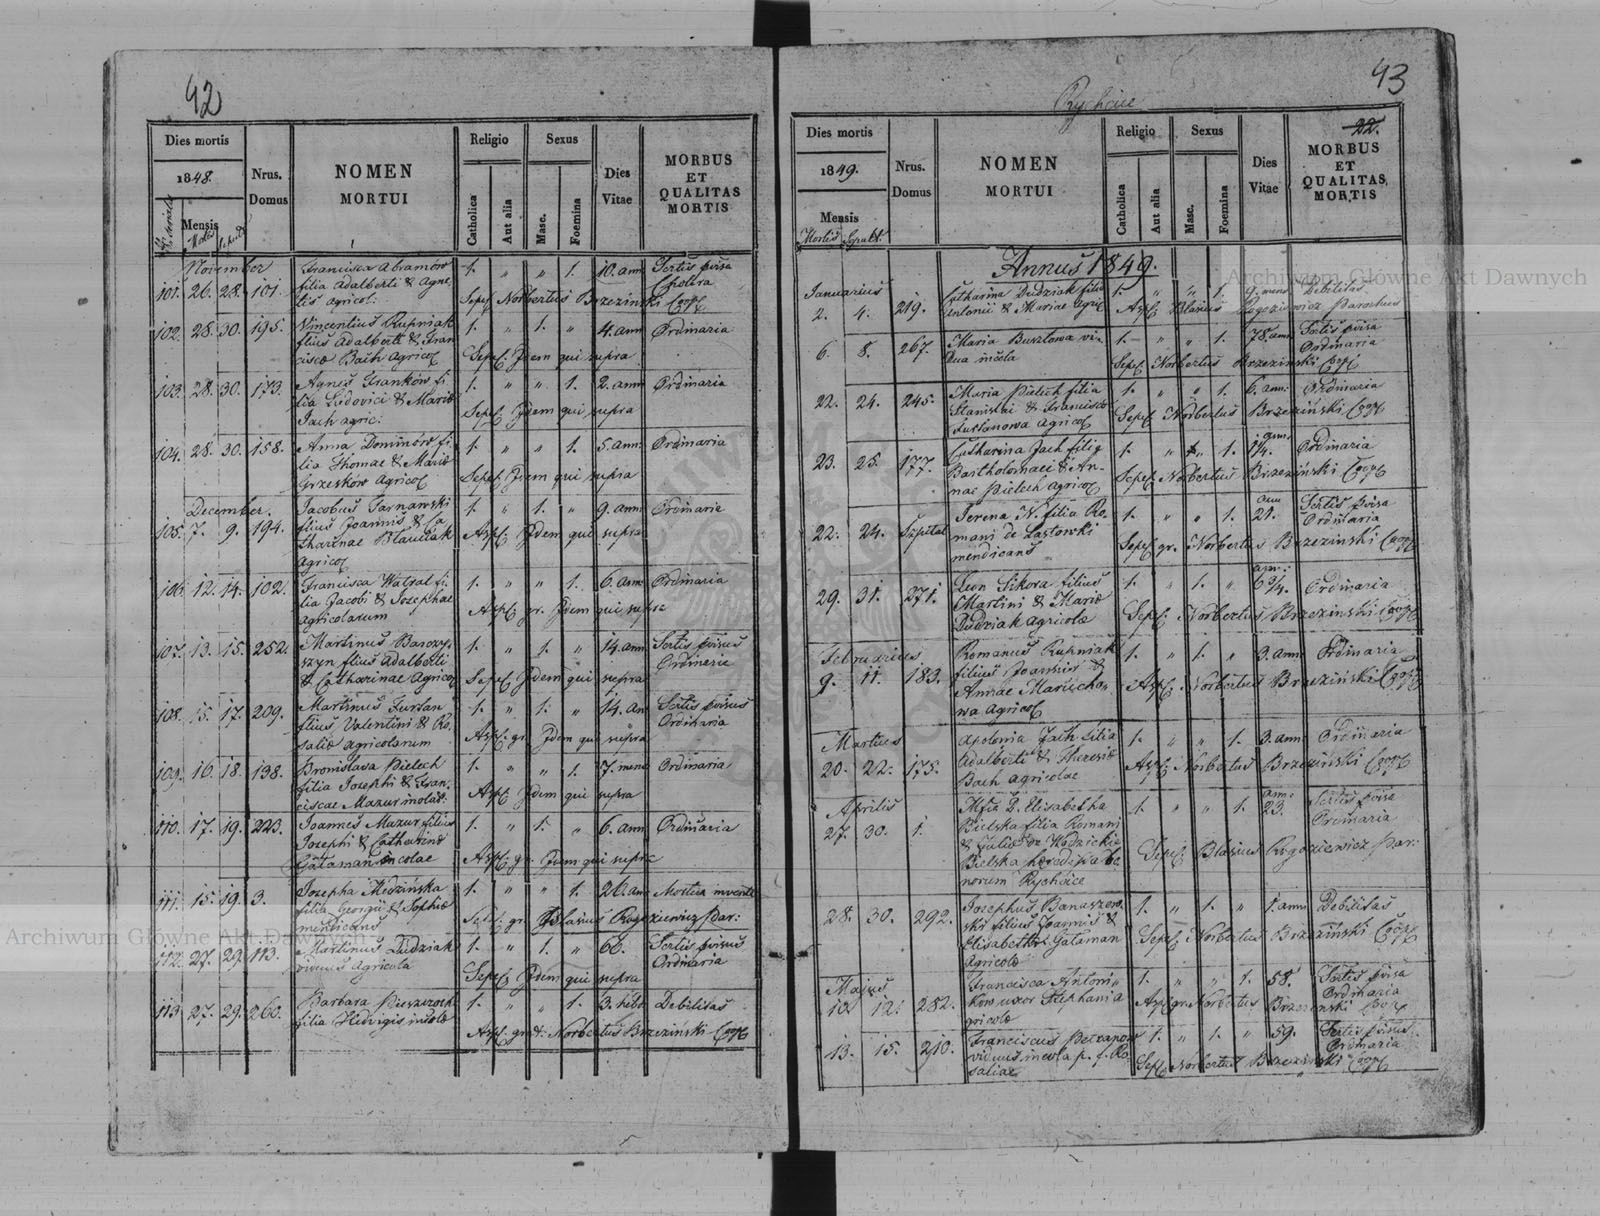 42
Dies mortis
1848.
Mensis
Nrus.
Domus
NOMEN
MORTUI
Religio
Catholica
Aut alia
Sexus
Masc.
Foemina
Dies
Vitae
MORBUS
ET
QUALITAS
MORTIS
November
101. 26. 28. 101. Francisca Abramów 1. " " 1. 10. ann
filia Adalberti & Agne
tis agricol: Sepel Norbertus Brzezinski Coop
Cholera
102. 28. 30. 195. Vincentius Rupniak 1. " 1. " 4. ann Ordinaria
filius Adalberti & Fran
ciscæ Bach Agricol Sepel Idem qui supra
103. 28. 30. 173. Agnes Franków fi 1. " " 1. 2. ann Ordinaria
lia Ludovici & Mariæ
Jach agric. Sepel Idem qui supra
104. 28. 30. 158. Anna Dominów fi 1. " " 1. 5. ann: Ordinaria
lia Thomae & Mariæ
Grzesków Agricol Sepel Idem qui supra
December.
105. 7. 9. 194. Jacobus Tarnawski 1. " 1. " 9. ann Ordinaria
filius Joannis & Ca
tharinae Agricol Asp: Idem qui supra
106. 12. 14. 102. Francisca Watral fi 1. " " 1. 6. ann Ordinaria
lia Jacobi & Josephae
agricolarum Asp: gr. Idem qui supra
107. 13. 15. 252. Martinus Barczy 1. " 1. " 14. ann
szyn filius Adalberti
& Catharinae Agricol Sepel Idem qui supra
Ordinaria
108. 15. 17. 209. Martinus Furtan 1. " 1. " 14. an
filius Valentini & Ro
saliæ agricolarum Asp: gr. Idem qui supra
Ordinaria
109. 16. 18. 138. Bronislava Pielech 1. " " 1. 7. mens Ordinaria
filia Josephi & Fran
ciscae Mazur Asp: Idem qui supra
110. 17. 19. 223. Joannes Mazur filius 1. " 1. " 6. ann Ordinaria
Josephi & Catharinæ
Gątaman incolae Asp: gr. Idem qui supra
111. 15. 19. 3. Josepha Medzińska 1. " " 1. 26. ann Mortua inventa
filia Georgii & Sophiæ
mendicans Sepel gr. Blasius Rogoziewicz Par:
112. 27. 29. 113. Martinus Dudziak 1. " 1. " 66.
viduus Agricola Sepel Idem qui supra
Ordinaria
113. 27. 29. 260. Barbara 1. " " 1. 3. hebd Debilitas
filia Hedvigis incolæ
Asp: Norbertus Brzeziński Coop
43
Rychcice
22.
Dies mortis
1849.
Mensis
Mortis Sepult.
Nrus.
Domus
NOMEN
MORTUI
Religio
Catholica
Aut alia
Sexus
Masc.
Foemina
Dies
Vitae
MORBUS
ET
QUALITAS
MORTIS
Annus 1849.
Januarius
2. 4. 219. Catharina Dudziak filia 1. " " 1. 9. mens Debilitas
Antonii & Mariae Agric Asp: Blasius Rogoziewicz Parochus
6. 8. 267. Maria Busztowa vi 1. " " 1. 78. ann
dua incola Ordinaria
Sepel Norbertus Brzezinski Coop
22. 24. 245. Maria Pielech filia 1. " " 1. 6. ann: Ordinaria
Stanislai & Franciscæ
Agricol Sepel Norbertus Brzezinski Coop
23. 25. 177. Catharina Jach filia 1. " " 1. ann 1 1/4. Ordinaria
Bartholomaei & An
nae Pielech Agricol Sepel Norbertus Brzezinski Coop
22. 24. Szpital Terena N. filia Ro 1. " " 1. ann 21.
mani de Lastowki Ordinaria
mendicans Sepel gr. Norbertus Brzezinski Coop
29. 31. 271. Leon Sikora filius 1. " 1. " ann: 6 3/4. Ordinaria
Martini & Mariæ
Dudziak Agricolæ Sepel: Norbertus Brzezinski Coop
Februarius
9. 11. 183. Romanus Rupniak 1. " 1. " 3. ann Ordinaria
filius Joannis &
Annae Marucho
wa Agricol Asp: Norbertus Brzeziński Coop
Martius
20. 22. 175. Apolonia Jach filia 1. " " 1. 3. ann Ordinaria
Adalberti & Theresiæ
Bach agricolae Asp: Norbertus Brzeziński Coop
Aprilis
27. 30. 1. Mfia D. Elisabetha 1. " " 1. ann: 23.
Bielska filia Romani Ordinaria
& Juliæ de Wodzickie
Bielska heredissa bo
norum Rychcice Sepel Blasius Rogoziewicz Par:
28. 30. 292. Josephus Banaszew 1. " 1. " 1. ann Debilitas
ski filius Joannis &
Elisabethæ Gątaman
Agricolæ Sepel Norbertus Brzeziński Coop
Majus
10. 12. 252. Francisca Antoni 1. " " 1. 58.
ków uxor Stephani a Ordinaria
gricolæ Asp: gr. Norbertus Brzezinski Coop
13. 15. 210. Franciscus 1. " 1. " 59.
viduus incola p. f. Ro Ordinaria
saliae Sepel Norbertus Brzezinski Coop
Archiwum Główne Akt Dawnych
Archiwum Główne Akt Dawnych